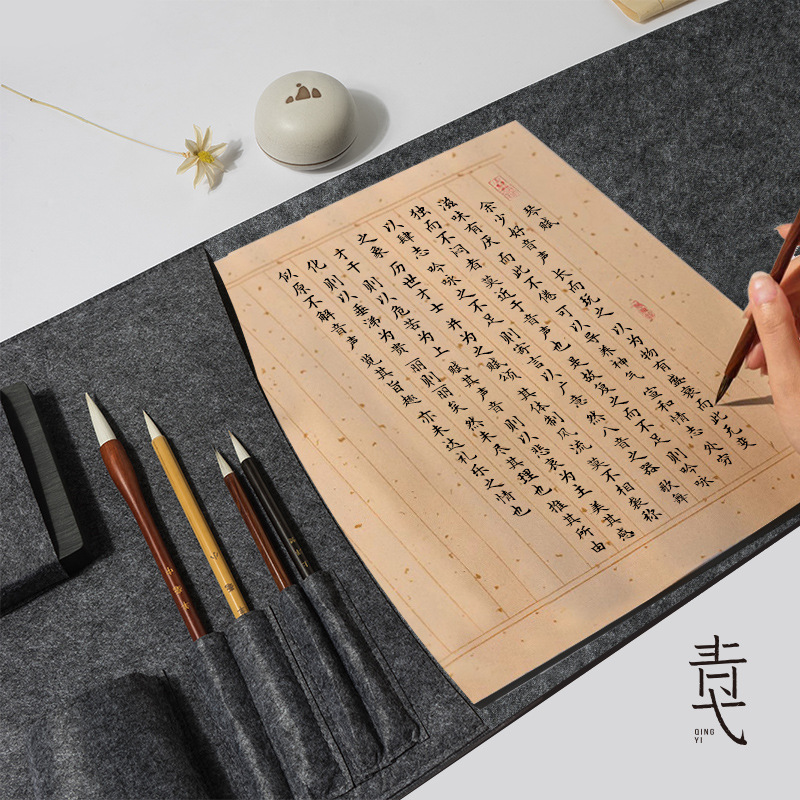 琴赋
余少好音声长而玩之以为物有盛衰而此无变
滋味有厌而此不倦可以导养神气宣和情志处穷
独而不闷者莫近于音声也是故复之而不足则吟咏
以肆志吟咏之不足则寄言以广意然八音之器歌舞
之象历世才士并为之赋颂其体制风流莫不相袭称
才干则以危苦为上赋其声音则以悲哀为主美其感
化则以垂涕为贵丽则丽矣然未尽其理也推其所由
似原不解音声览其旨趣亦未达礼乐之情也
青弋
QING
YI